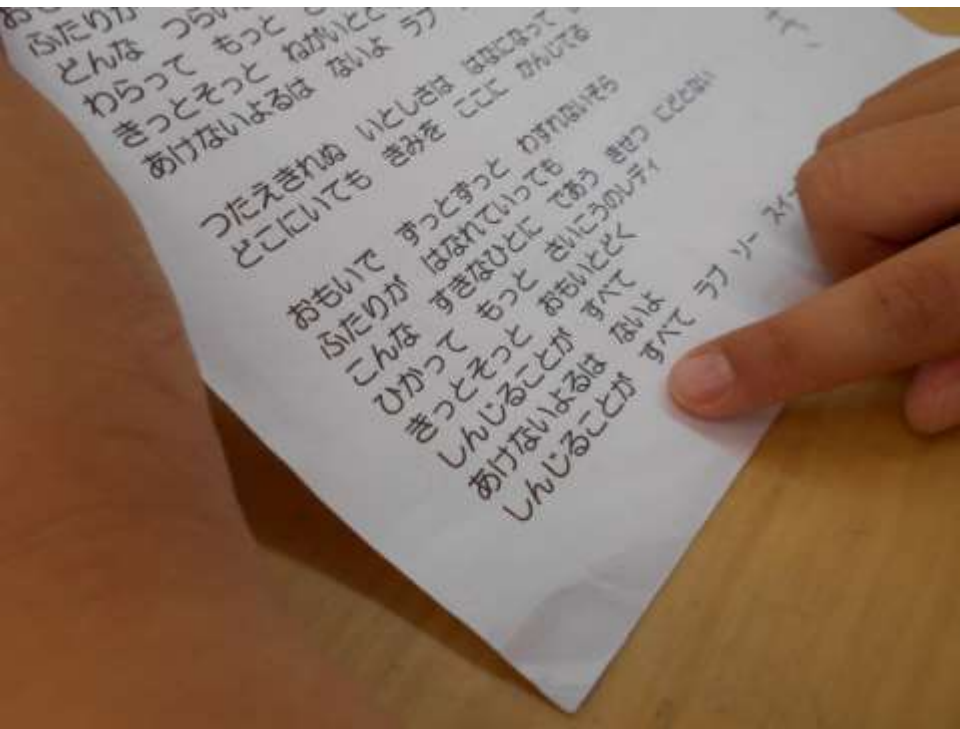 ふたりが
どんな つらい
わらって もっと
きっとそっと ねがいとど
あけないよるは ないよ ラブ
つたえきれぬ いとしさは はなになって
どこにいても きみを ここに かんじてる
おもいで ずっとずっと わすれないそら
ふたりが はなれていっても
こんな すきなひとに であう きせつ にどとない
ひかって もっと さいこうのレディ
きっとそっと おもいとどく
しんじることが すべて
あけないよるは ないよ
しんじることが すべて ラブ ソー スイー